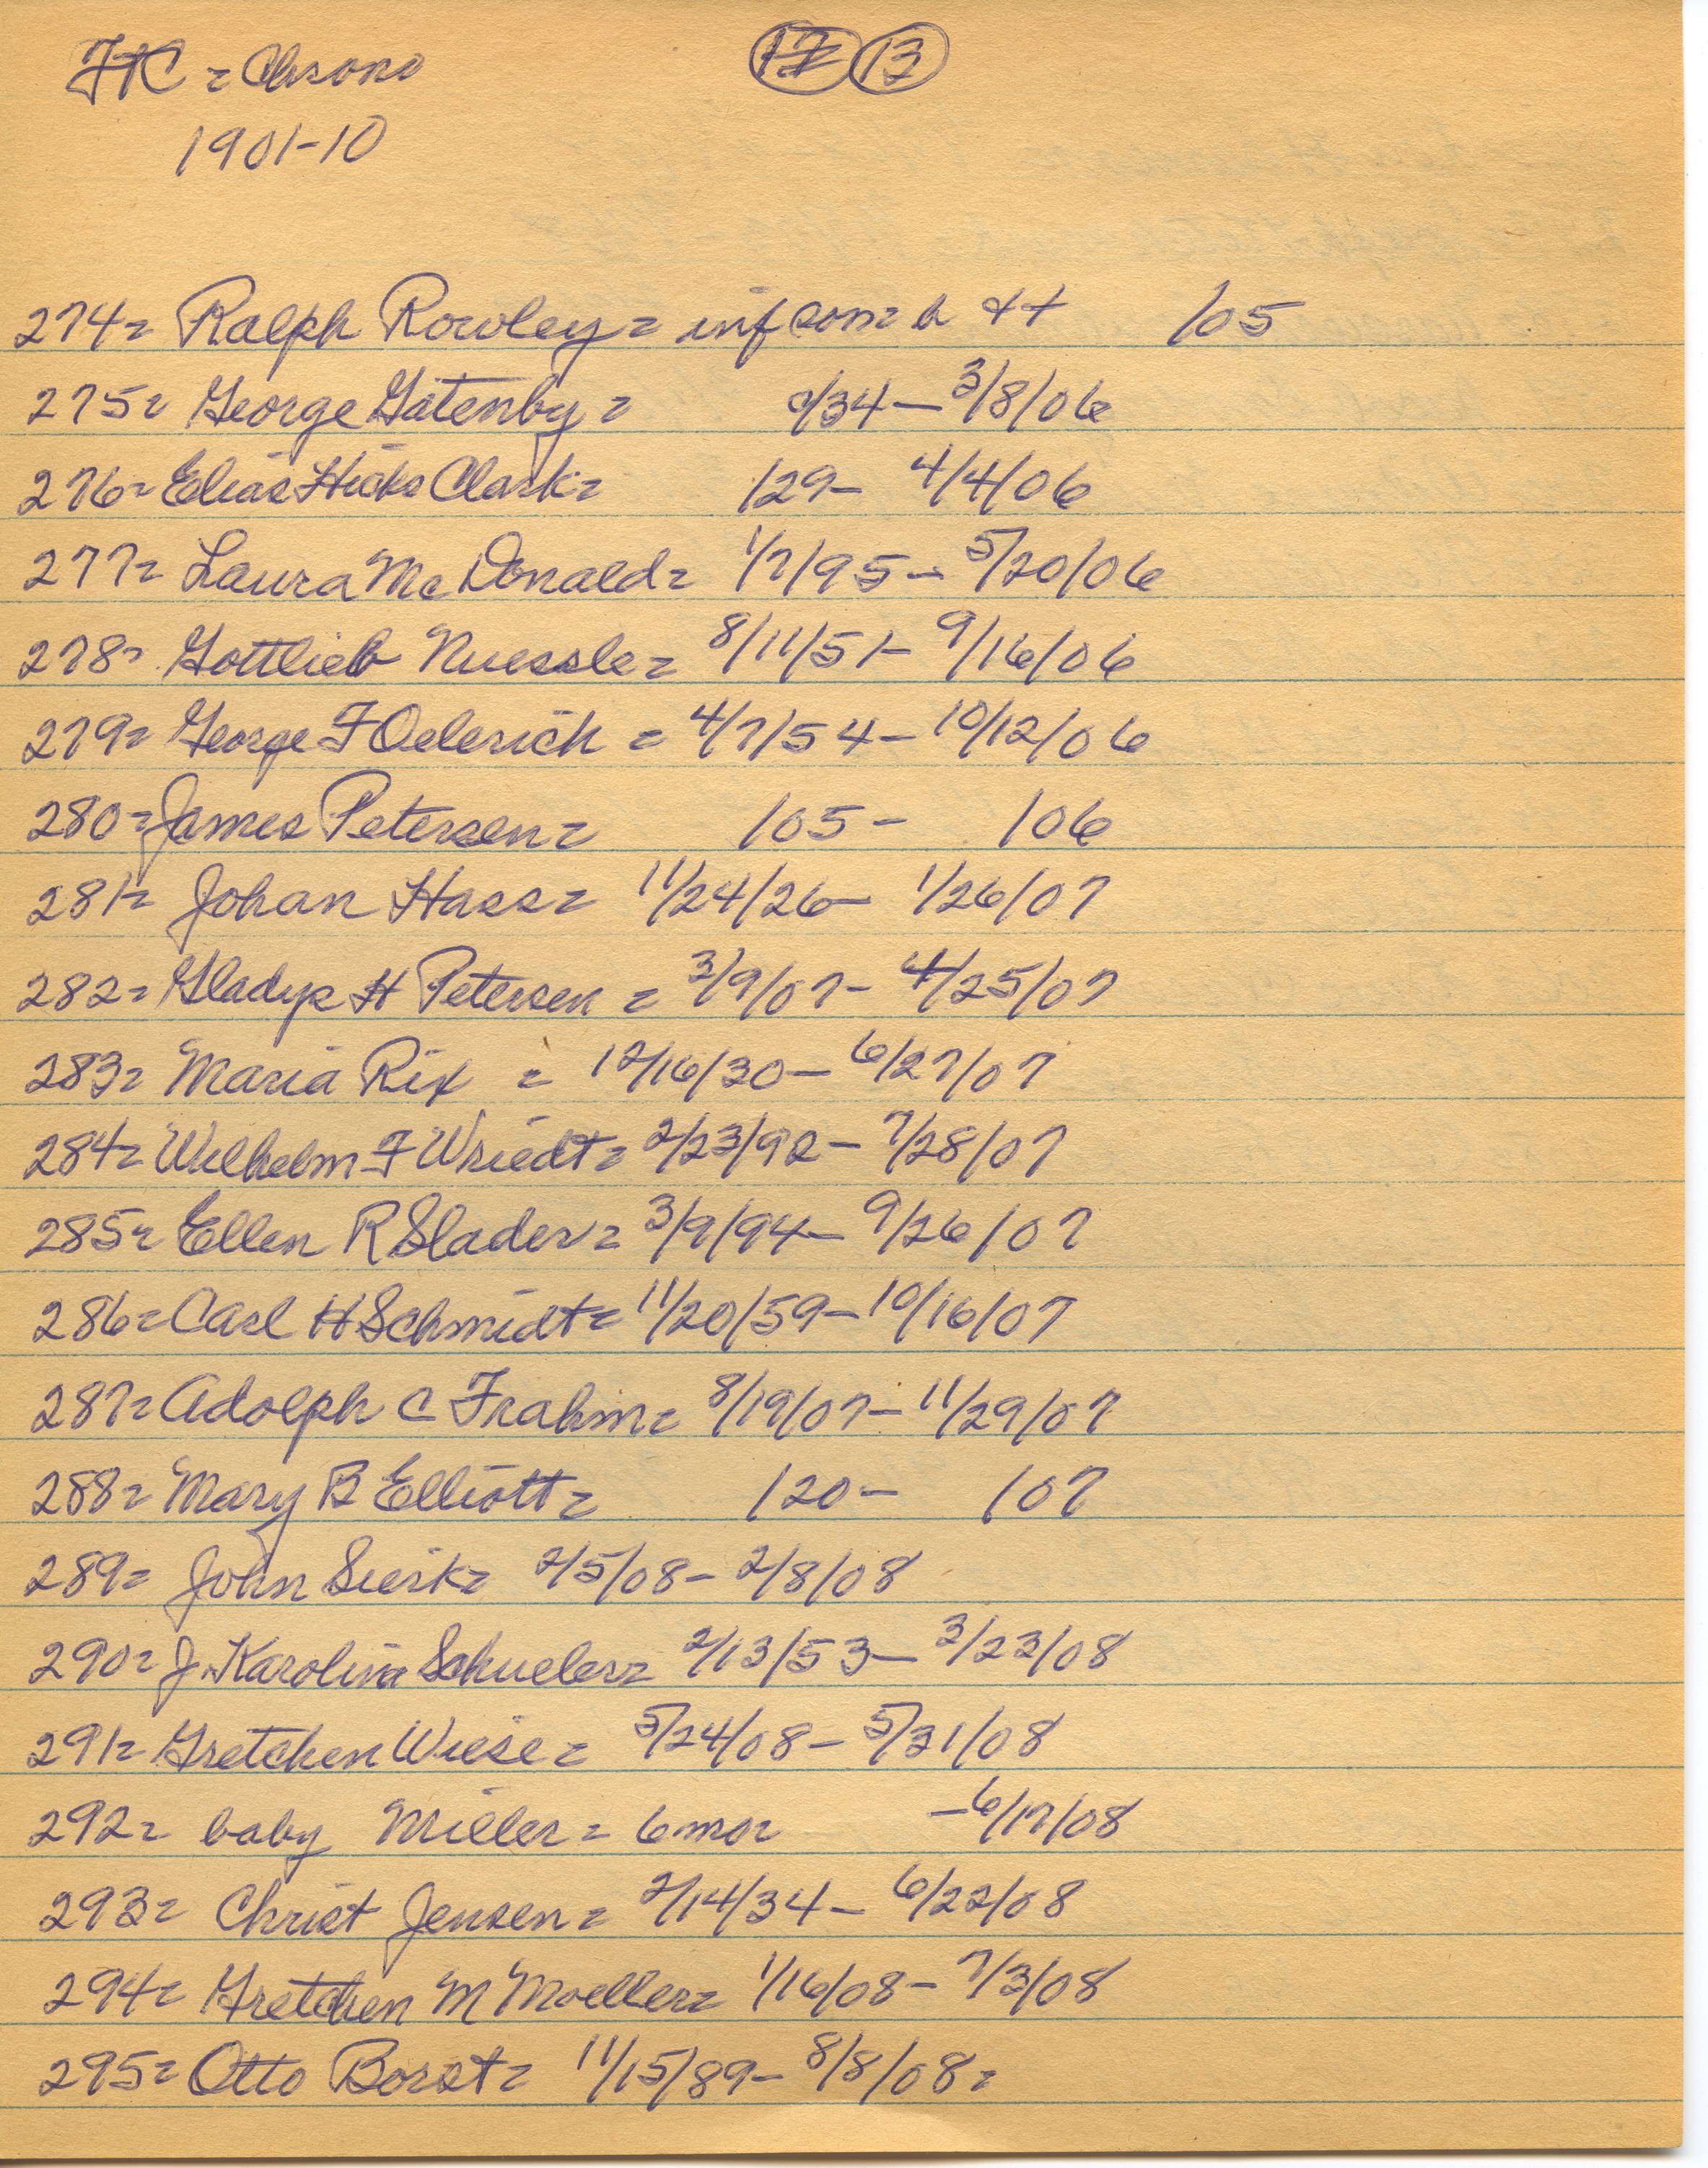 FC = Chrono 12 13
1901-10
274= Ralph Rowley= inf son= & ++ /05
275= George Gatenby= c/34- 3/8/06
276= Elias Hicks Clark= /29- 4/4/06
277= Laura McDonald= 1/7/95- 5/20/06
278= Gottlieb Nuessle= 8/11/51- 9/16/06
279= George F Oelerich = 4/7/54- 10/12/06
280= James Petersen= /05- /06
281= Johan Hass= 11/24/26- 1/26/07
282= Gladys H Petersen = 3/9/07- 4/25/07
283= Maria Rix = 12/16/30- 6/27/07
284= Wilhelm F Wriedt= 2/23/92- 7/28/07
285= Ellen R Slader= 3/9/94- 9/26/07
286= Carl H Schmidt= 11/20/59- 10/16/07
287= Adolph C Frahm= 8/19/07- 11/29/07
288= Mary B Elliott= /20- /07
289= John Sierk= 2/5/08- 2/8/08
290= J. Karolina Schueler= 2/13/53- 3/23/08
291= Gretchen Wiese= 5/24/08- 5/31/08
292= baby Miller= 6mo= -6/17/08
293= Christ Jensen= 2/14/34- 6/22/08
294= Gretchen M Moeller= 1/16/08- 7/3/08
295= Otto Borst= 11/15/89- 8/8/08=